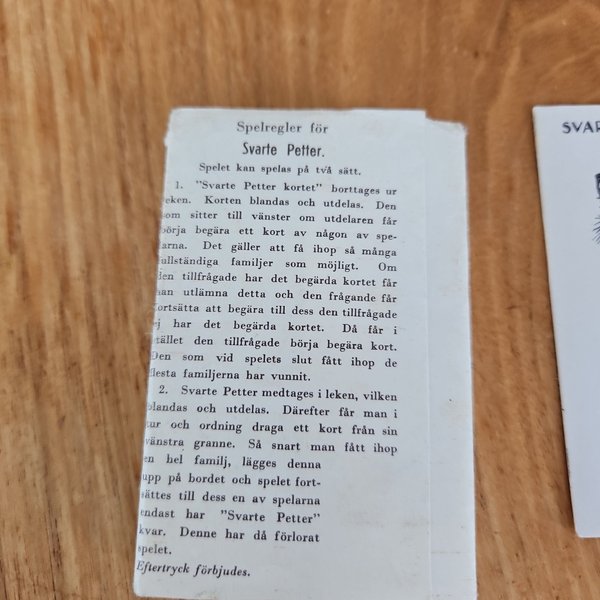 Spelregler för
Svarte Petter.
Spelet kan spelas på två sätt.
1. "Svarte Petter kortet" borttages ur
leken. Korten blandas och utdelas. Den
som sitter till vänster om utdelaren får
börja begära ett kort av någon av spe-
larna. Det gäller att få ihop så många
fullständiga familjer som möjligt. Om
den tillfrågade har det begärda kortet får
han utlämna detta och den frågande får
fortsätta att begära till dess den tillfrågade
ej har det begärda kortet. Då får i
stället den tillfrågade börja begära kort.
Den som vid spelets slut fått ihop de
flesta familjerna har vunnit.
2. Svarte Petter medtages i leken, vilken
blandas och utdelas. Därefter får man i
tur och ordning draga ett kort från sin
vänstra granne. Så snart man fått ihop
en hel familj, lägges denna
upp på bordet och spelet fort-
sättes till dess en av spelarna
endast har "Svarte Petter"
kvar. Denne har då förlorat
spelet.
Eftertryck förbjudes.
SVAR